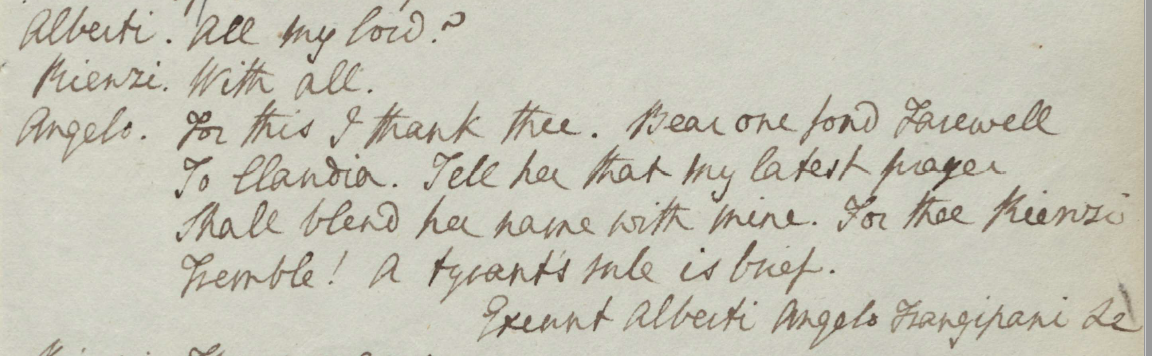 Alberti. All my lord?
Rienzi. With all.
Angelo. For this I thank thee. Bear one fond Farewell
To Claudia. Tell her that my latest prayer
Shall blend her name with mine. For thee Rienzi
Tremble! A tyrant's rule is brief.
Exeunt Alberti Angelo Frangipani &c